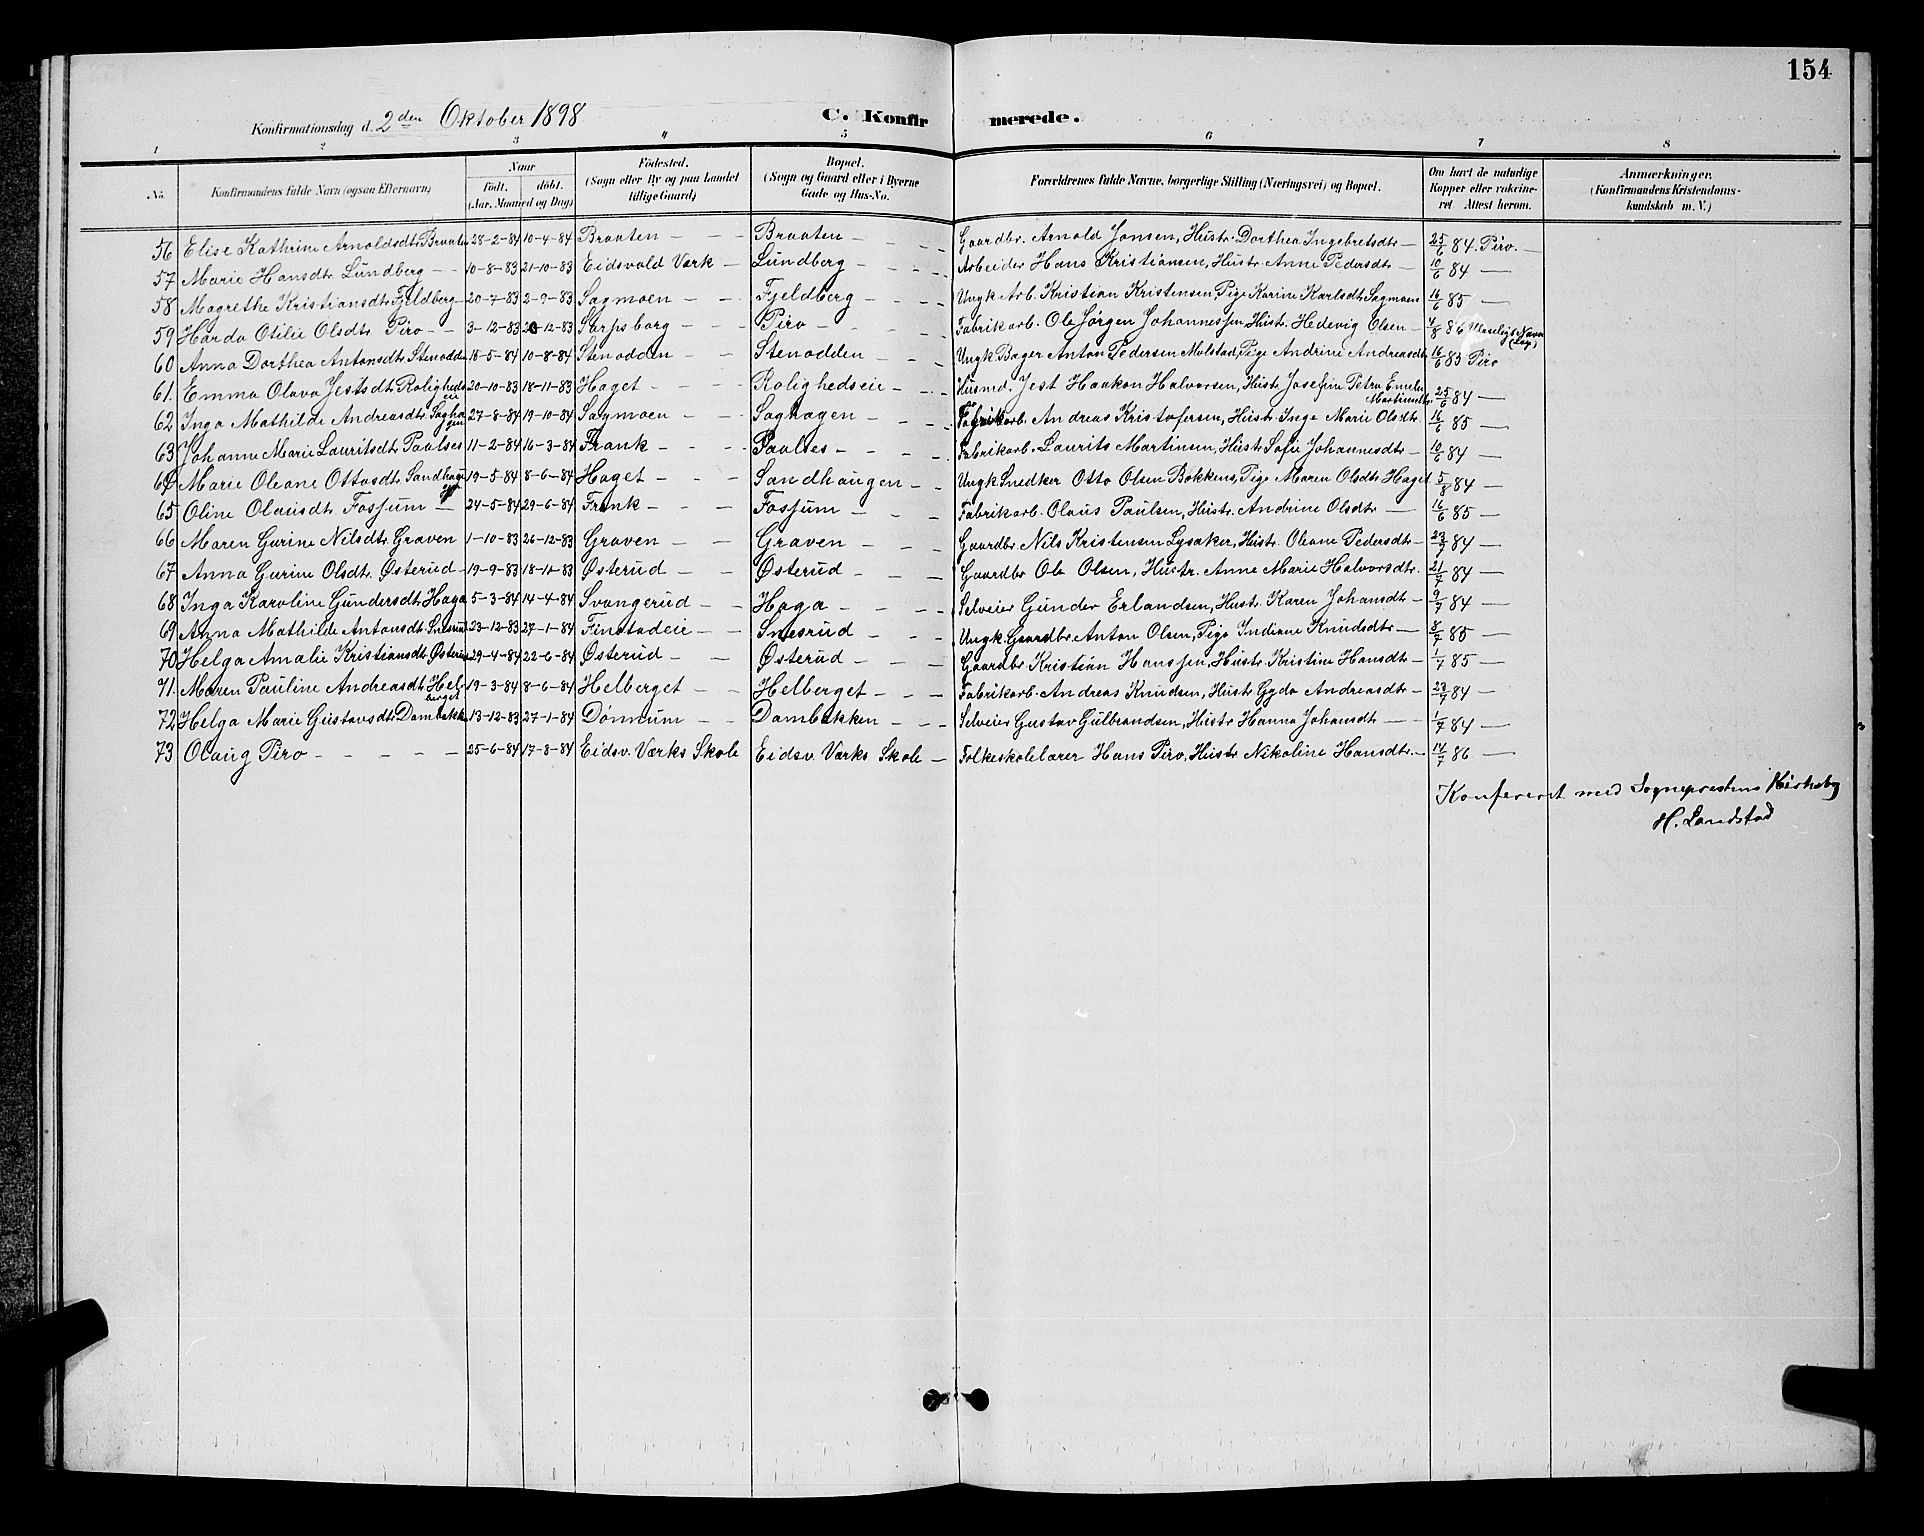 154
Konfirmationsdag d. 2den Oktober 1898 C. Konfirmerede.
1 2 3 4 5 6 7 8
No. Konfirmandens fulde Navn (ogsaa Efternavn) Naar Födt. döbt. (Aar, Maaned og Dag) Födested. (Sogn eller By og paa Landet tillige Gaard) Bopæl. (Sogn og Gaard eller i Byerne Gade og Hus-No. Forældrenes fulde Navne, borgerlige Stilling (Næringsvei) og Bopæl. Om havt de naturlige Kopper eller vakcineret Attest herom. Anmærkninger. (Konfirmandens Kristendomskundskab m. V.)
56 Elise Kathrine Arnoldsdtr Braaten 28-2-84 10-4-84 Braaten - - - Braaten - - - Gaardbr. Arnold Jonsen, Hustr. Dorthea Ingebretsdtr - 25/6 84. Piro. -
57 Marie Hansdtr Lundberg - - 10-8-83 21-10-83 Eidsvold Værk - Lundberg - - - Arbeider Hans Kristiansen, Hustr. Anne Pedersdtr - 10/6 84 -
58 Magrethe Kristiansdtr Fjeldberg - 20-7-83 2-9-83 Sagmoen - - Fjeldberg - - - Ungk. Arb. Kristian Kristensen, Pige Karine Karlsdtr Sagmoen 16/6 85 -
59 Harda Otilie Olsdtr Piro - - 3-12-83 -12-83 Sarpsborg - - Piro - - - Fabrikarb. Ole Jørgen Johannessen, Hustr. Hedevig Olsen - 4/8 86
60 Anna Dorthea Antonsdtr Stenodden 15-5-84 10-8-84 Stenodden - - Stenodden - - - Ungk Bager Anton Pedersen Molstad, Pige Andrine Andreasdtr 16/6 85 Piro
61. Emma Olava Jestsdtr Rolighedseie 20-10-83 18-11-83 Haget - - - Rolighedseie - - Husmd. Jest Haakon Halvorsen, Hustr Josefine Petra Emelie Martinsdtr 25/6 84 -
62 Inga Mathilde Andreasdtr Saghagen 27-8-84 19-10-84 Sagmoen - - Saghagen - - - Fabrikarb. Andreas Kristofersen, Hustr. Inge Marie Olsdtr. 16/6 85 -
63 Johanne Marie Lauritsdtr Paulses 11-2-84 16-3-84 Frank - - - Paulses - - - Fabrikarb. Laurits Martinsen, Hustr. Sofie Johannesdtr - 10/6 84 -
64 Marie Oleane Ottosdtr Sandhaugen 19-5-84 8-6-84 Haget - - - Sandhaugen - - Ungk Snedker Otto Olsen Bekkens, Pige Maren Olsdtr Haget 5/8 84 -
65 Oline Olausdtr Fossum - 24-5-84 29-6-84 Frank - - - Fossum - - - Fabrikarb. Olaus Paulsen, Hustr. Andrine Olsdtr - 16/6 85 -
66 Maren Gurine Nilsdtr Graven 1-10-83 26-12-83 Graven - - Graven - - - Gaardbr. Nils Kristensen Lysaker, Hustr. Oleane Pedersdtr - 23/7 84 -
67 Anna Gurine Olsdtr. Østerud - 19-9-83 18-11-83 Østerud - - Østerud - - - Gaardbr Ole Olsen, Hustr. Anne Marie Halvorsdtr. 21/7 84 -
68 Inga Karoline Gundersdtr Haga 5-3-84 14-4-84 Svangerud - - Haga - - - Selveier Gunder Erlandsen, Hustr. Karen Johansdtr - 9/7 84 -
69 Anna Mathilde Antonsdtr Snesrud 23-12-83 27-1-84 Finstadeie - - Snesrud - - - Ungk. Gaardbr. Anton Olsen, Pige Indiane Knudsdtr - 8/7 85 -
70 Helga Amalie Kristiansdtr Østerud 29-4-84 22-6-84 Østerud - - Østerud - - - Gaardbr. Kristian Hanssen, Hustr. Kristine Hansdtr - 1/7 85 -
71. Maren Pauline Andreasdtr Helberget 19-3-84 8-6-84 Helberget - - Helberget - - - Fabrikarb. Andreas Knudsen, Hustr. Gyda Andreasdtr - 23/7 84 -
72 Helga Marie Gustavsdtr Dambakken 13-12-83 27-1-84 Dønnum - - Dambakken - - - Selveier Gustav Gulbrandsen, Hustr Hanna Johansdtr - 1/7 84 -
73 Olaug Piro - - - - - 25-6-84 17-8-84 Eidsv. Værks Skole Eidsv. Værks Skole - Folkeskolelærer Hans Piro, Hustr. Nikoline Hansdtr. - 14/7 86 -
Konfereret med Sogneprestens Kirkebog
H. Landstad